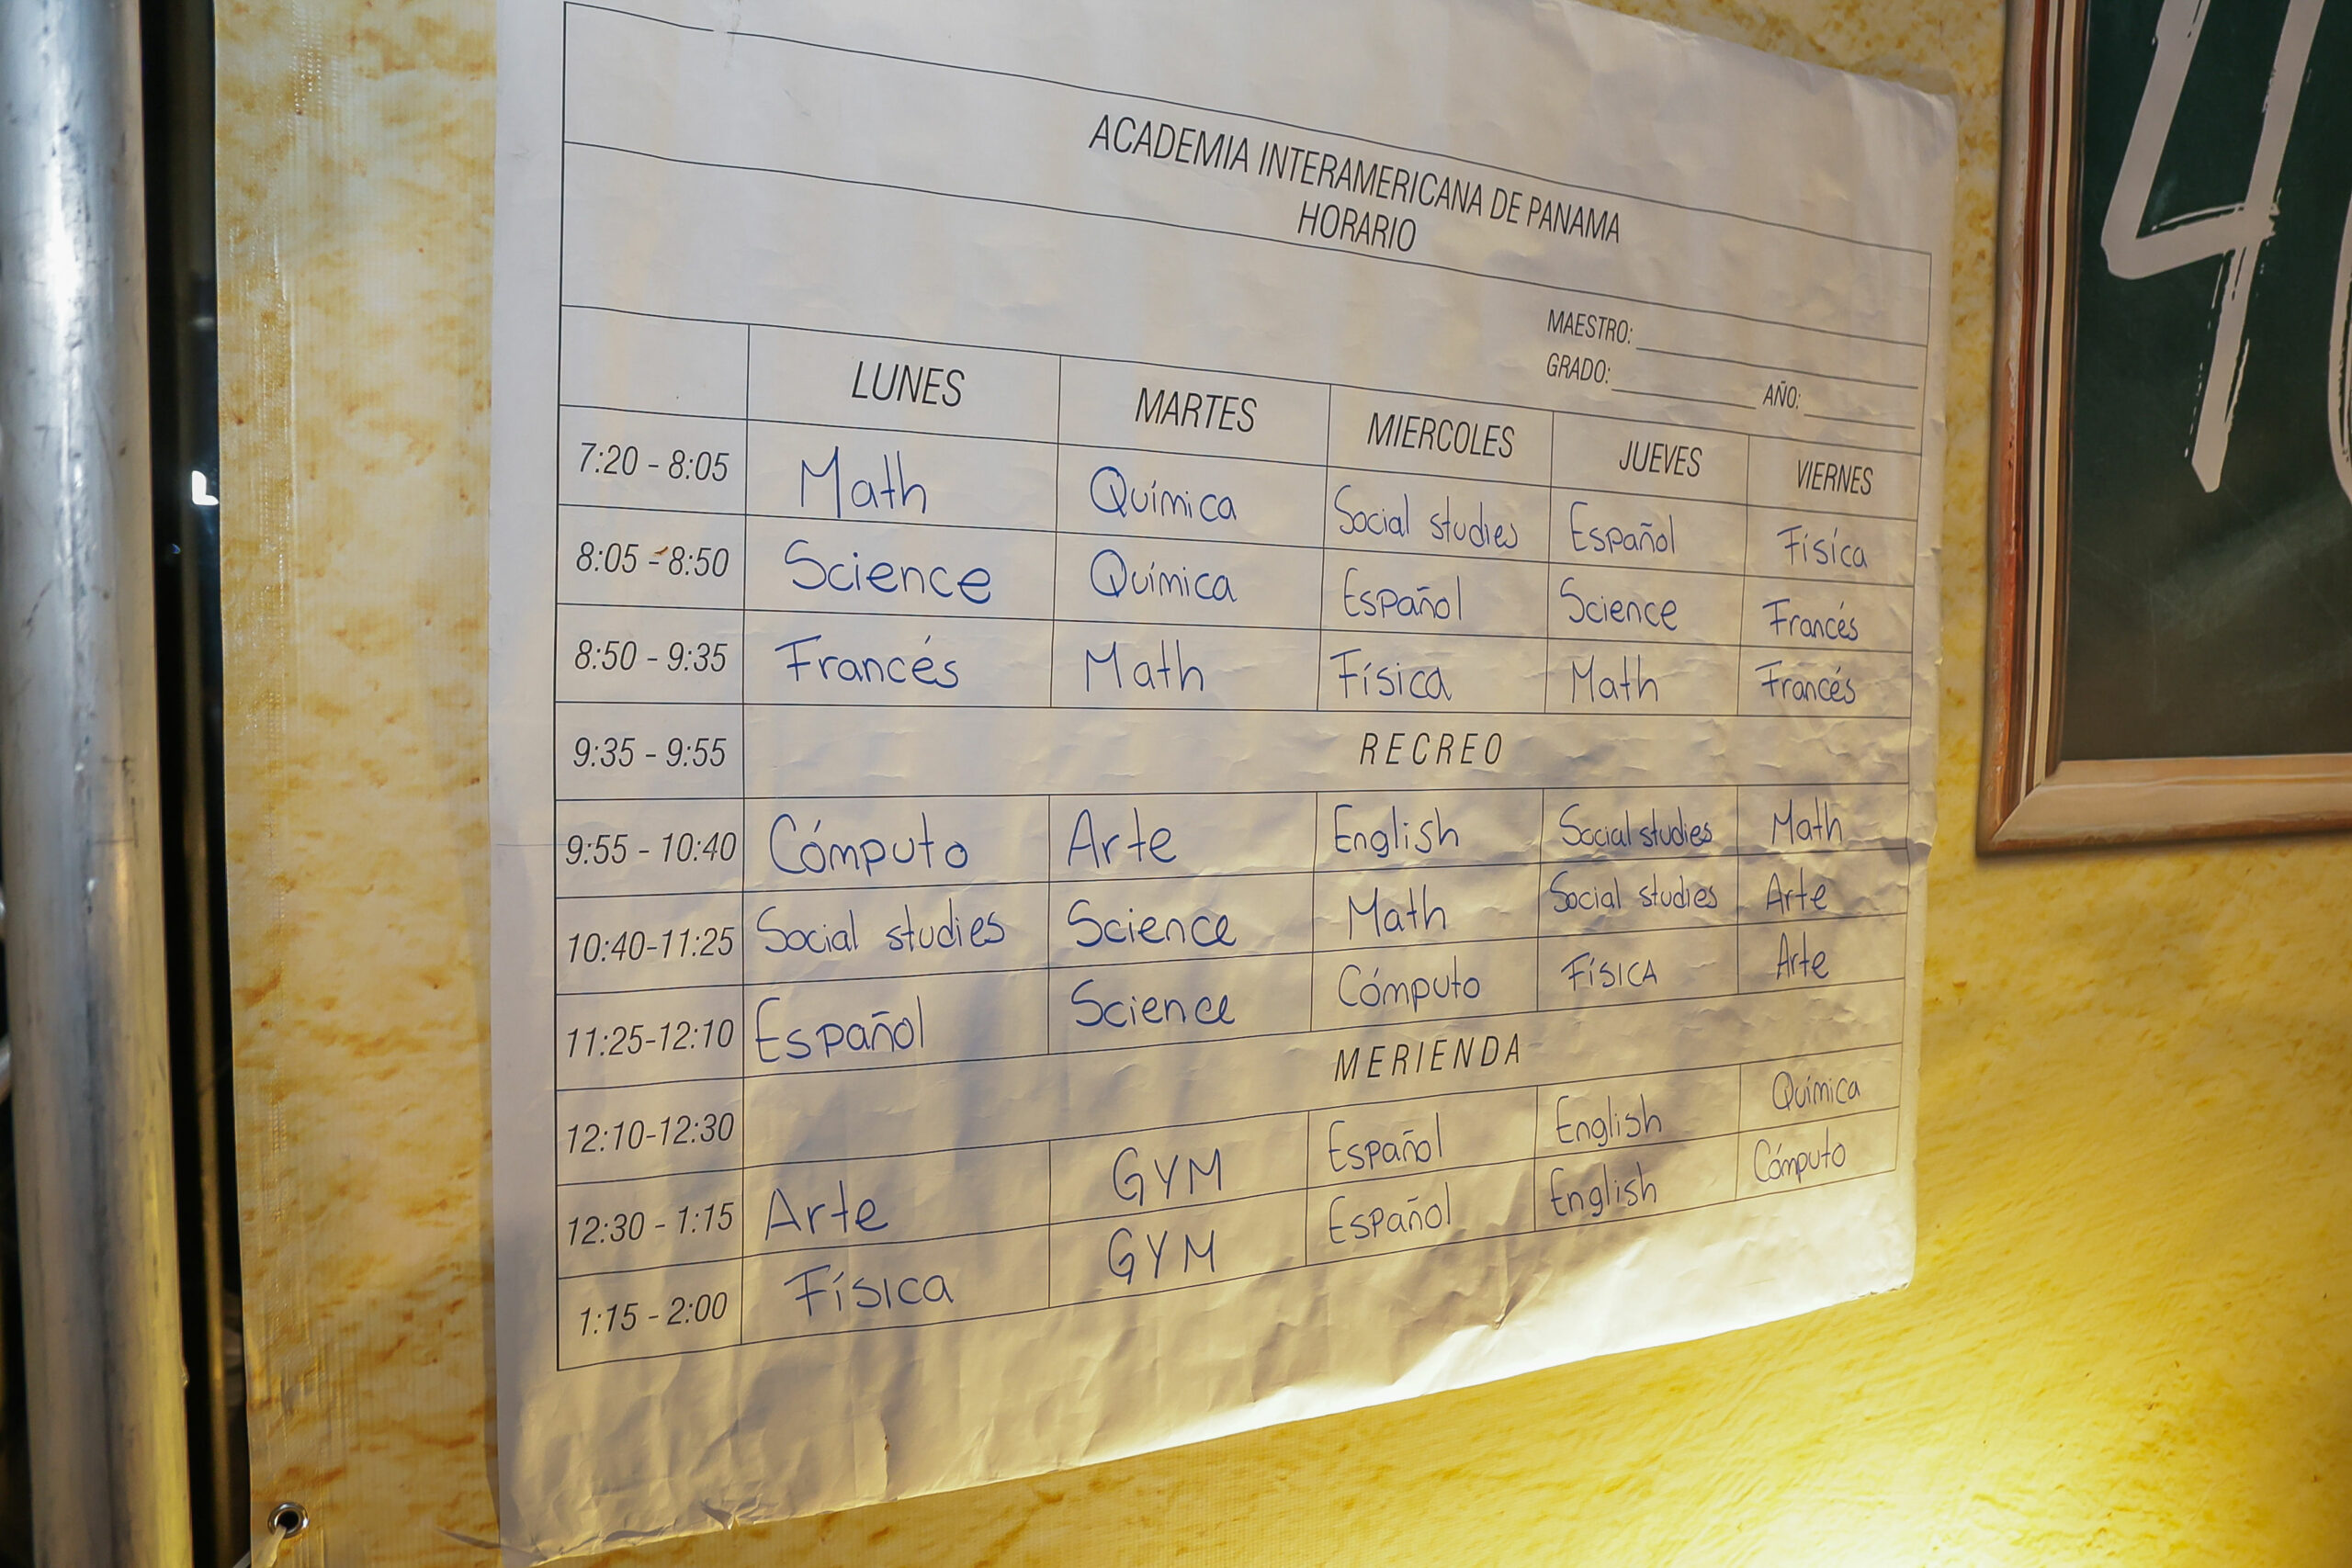 ACADEMIA INTERAMERICANA DE PANAMA
HORARIO
MAESTRO:
GRADO: AÑO:
LUNES MARTES MIERCOLES JUEVES VIERNES
7:20 - 8:05 Math Química Social studies Español Física
8:05 - 8:50 Science Química Español Science Francés
8:50 - 9:35 Francés Math Física Math Francés
9:35 - 9:55 RECREO
9:55 - 10:40 Cómputo Arte English Social studies Math
10:40-11:25 Social studies Science Math Social studies Arte
11:25-12:10 Español Science Cómputo FÍSICA Arte
12:10-12:30 MERIENDA
12:30 - 1:15 Arte GYM Español English Química
1:15 - 2:00 Física GYM Español English Cómputo